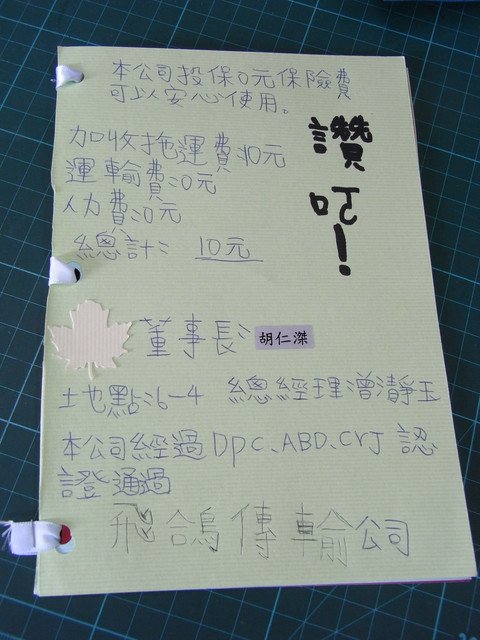 本公司投保0元保險費
可以安心使用。
讚吧!
加收拖運費:10元
運輸費:0元
人力費:0元
總計: 10元
董事長: 胡仁滐
土地點:6-4 總經理:曾瀞玉
本公司經過Dpc、ABD、CrJ 認
證通過
飛鴿傳輸公司